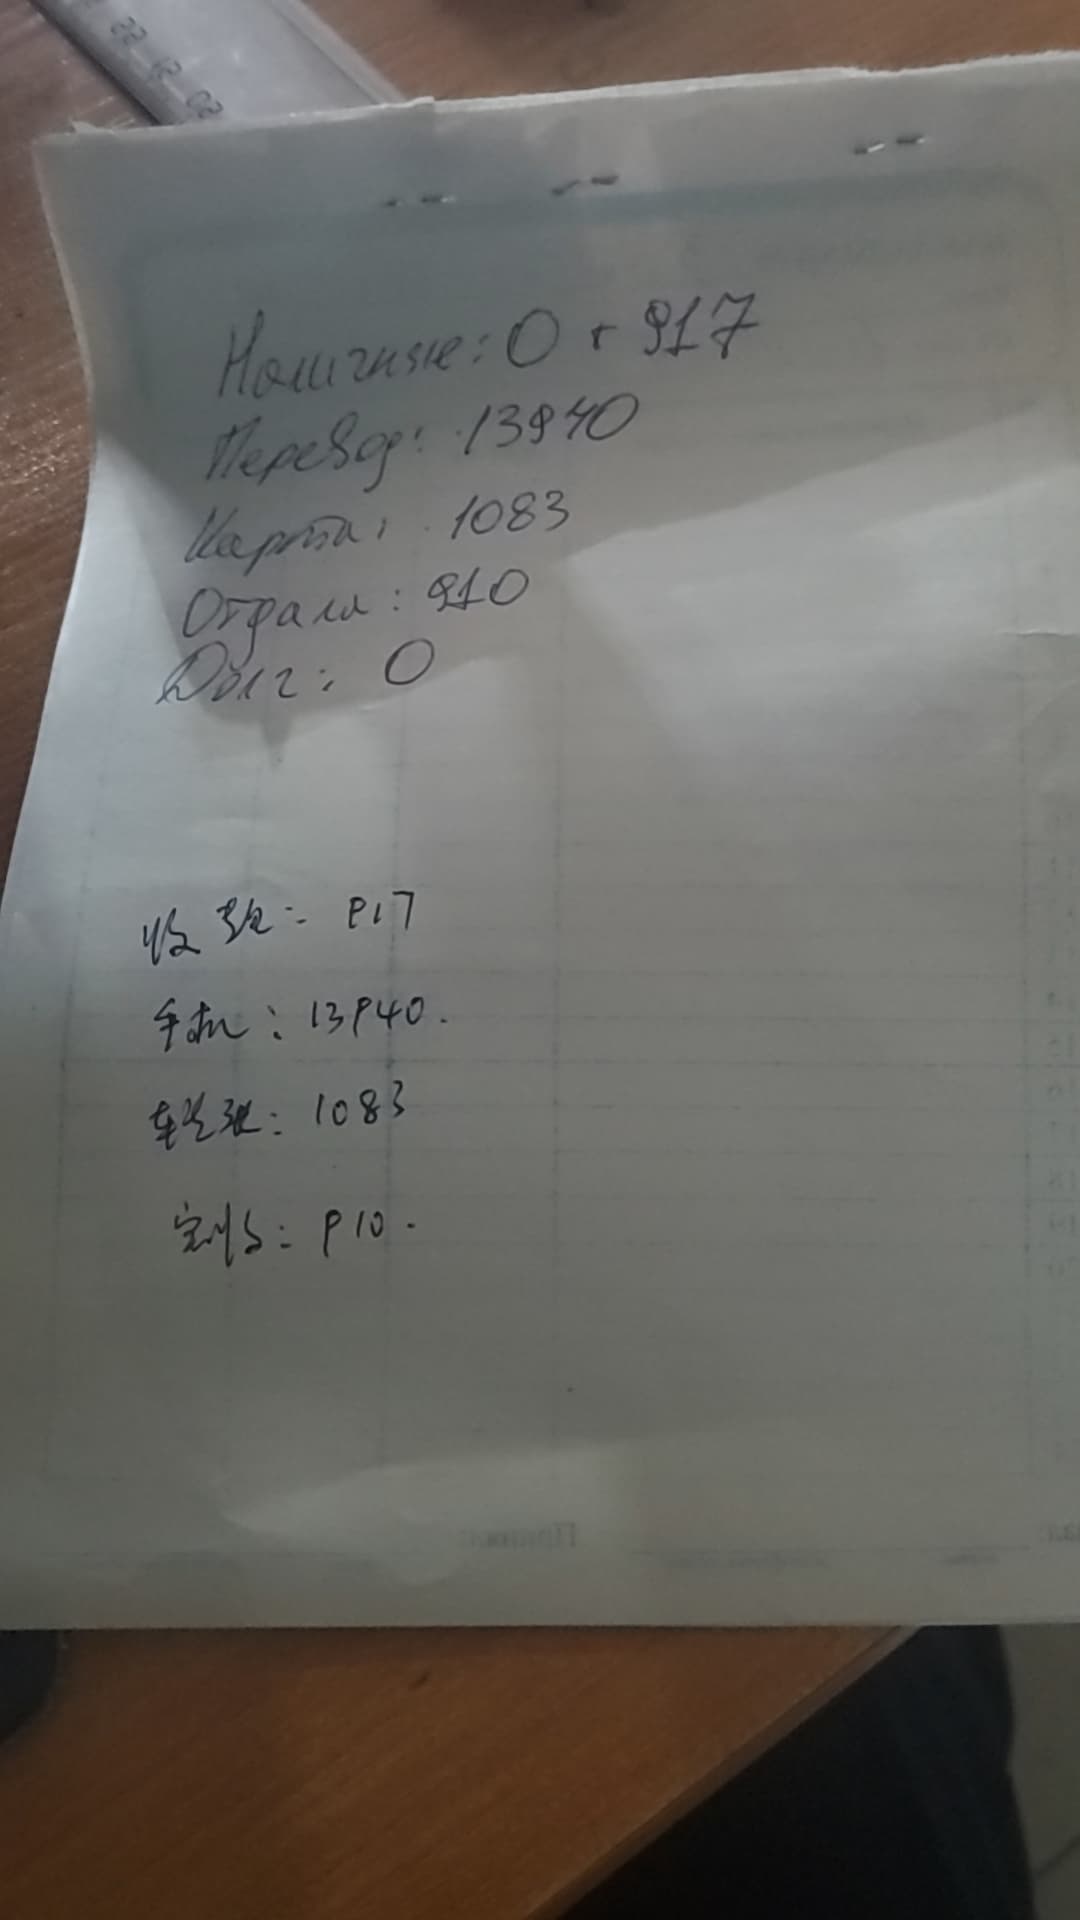 Наличные: 0 + 917
Перевод: 13940
Карта: 1083
Отдали: 910
Долг: 0
收款: 917
手机: 13940.
转账: 1083
910.